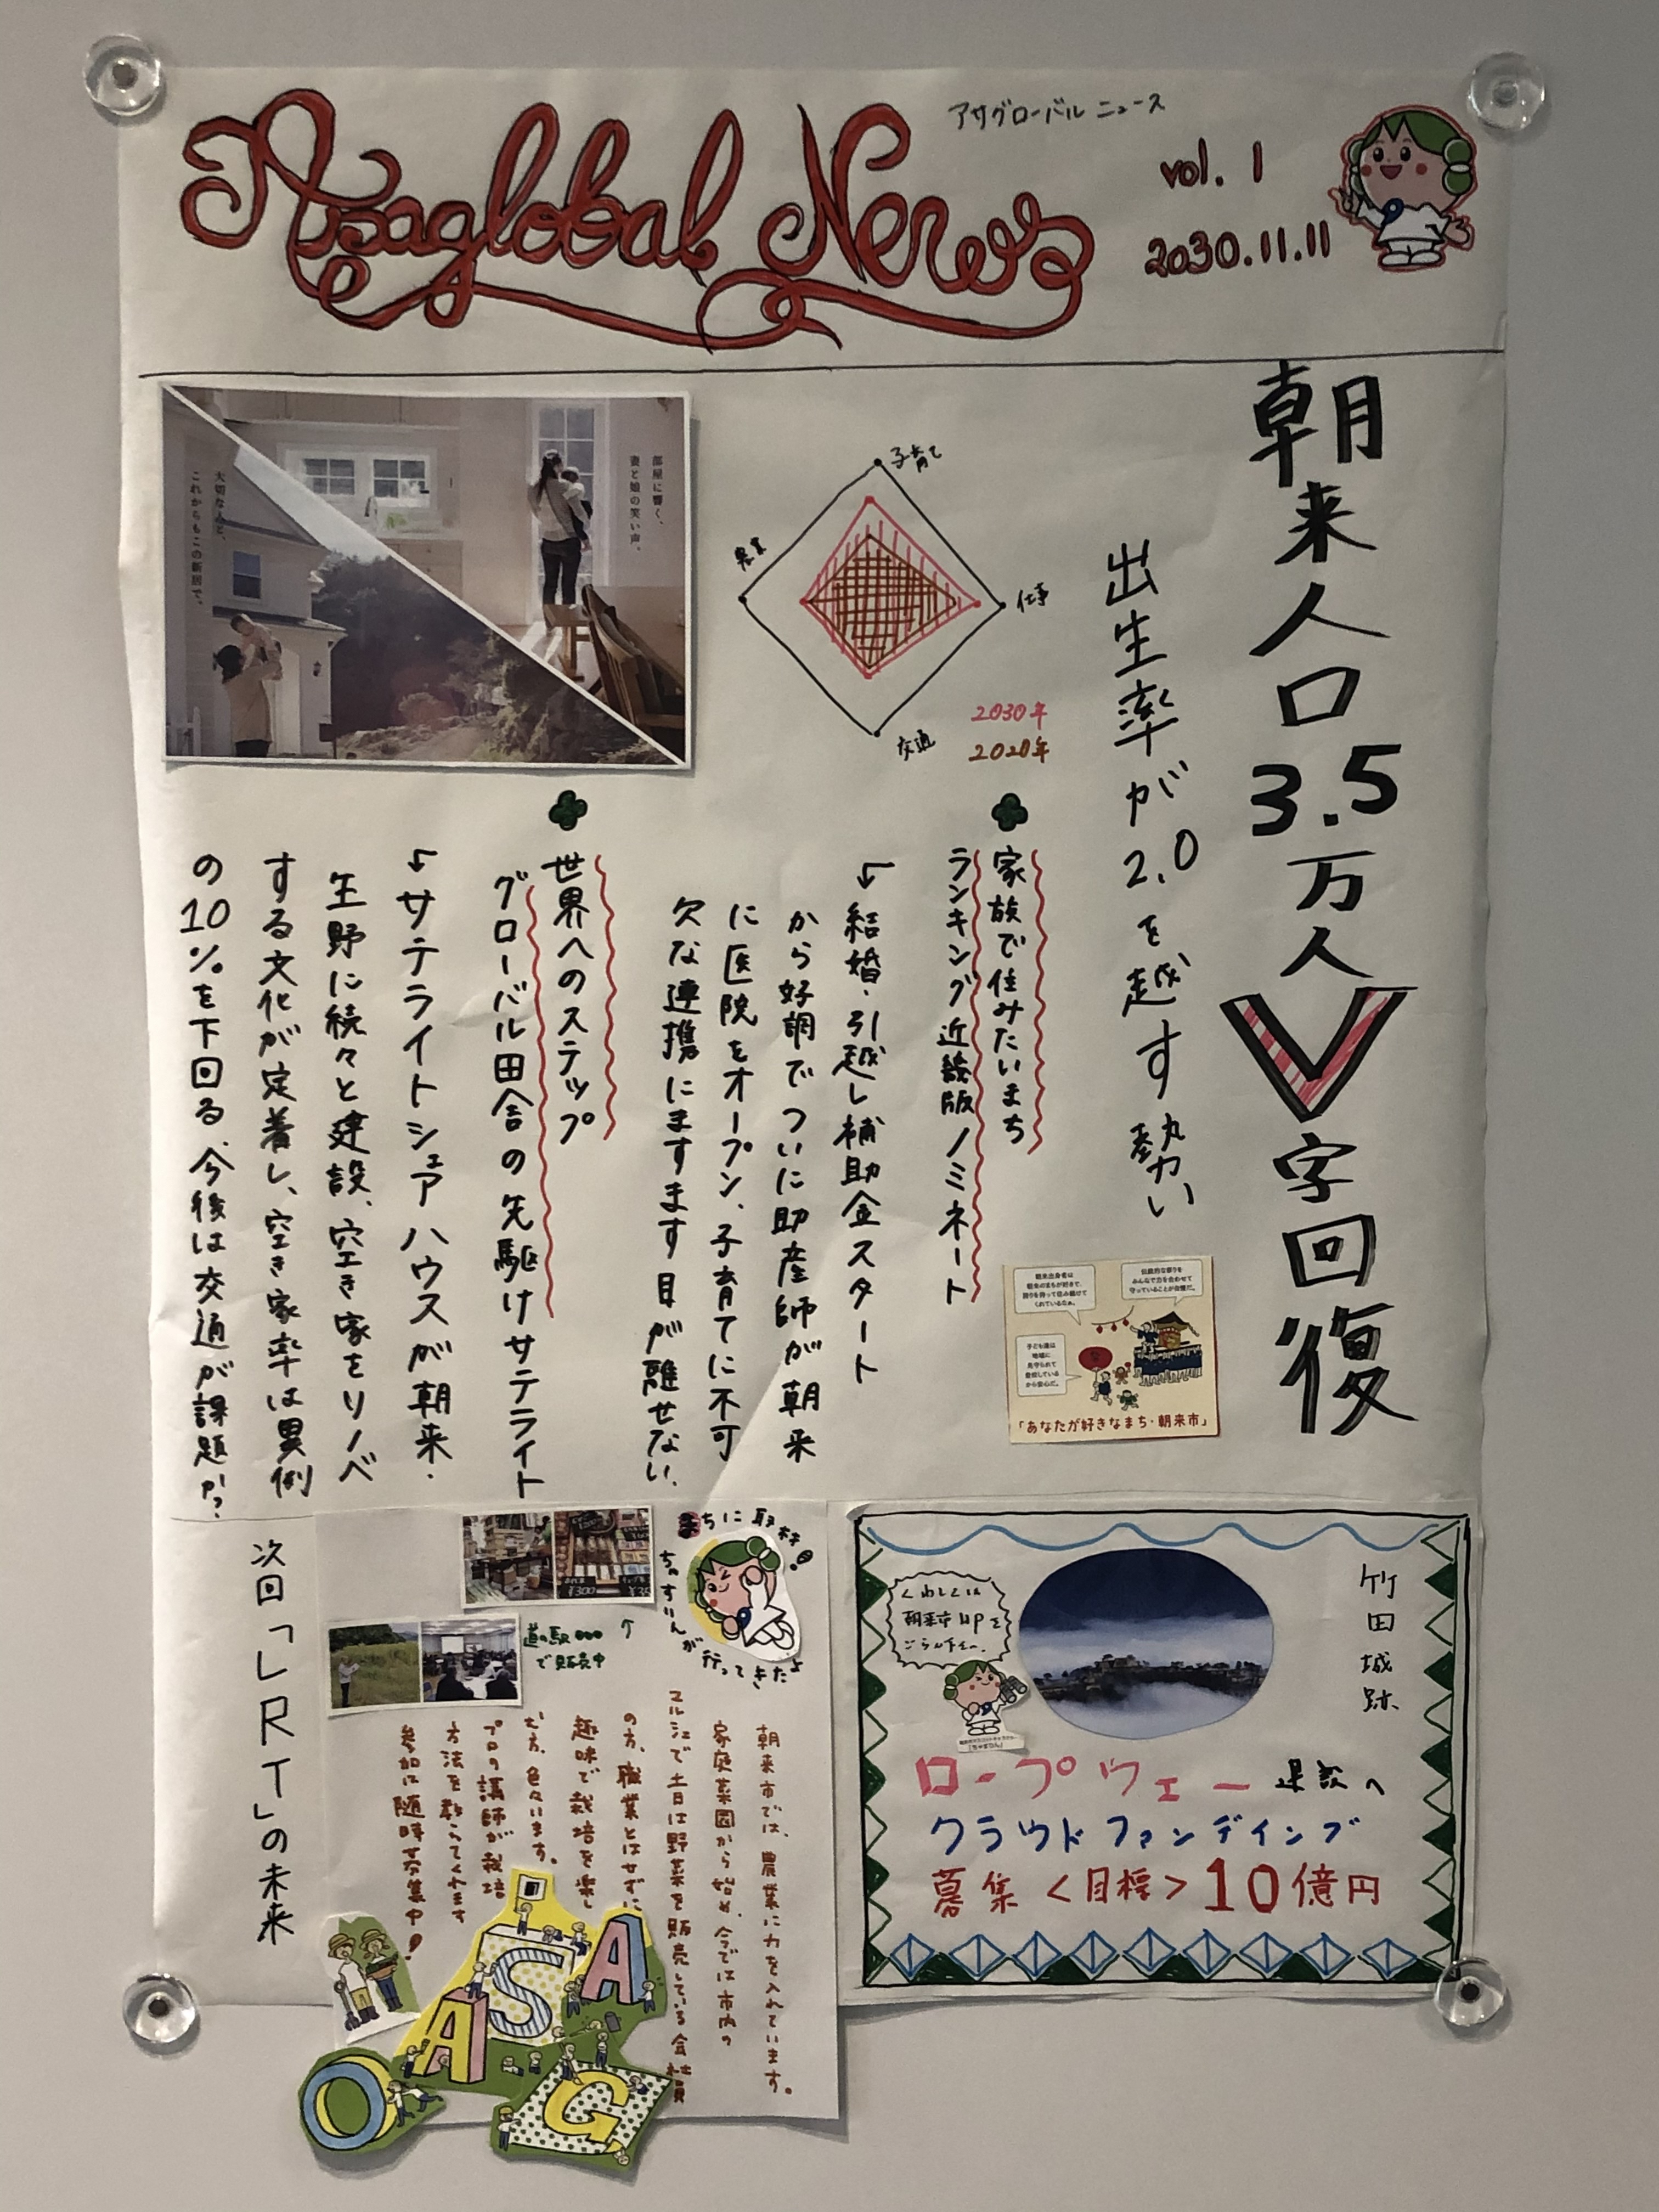 Asaglobal News
アサグローバル ニュース
vol. 1
2030.11.11
朝来人口3.5万人V字回復
出生率が2.0を越す勢い
子育て
仕事
交通
農業
2030年
2020年
部屋に響く、
妻と娘の笑い声。
大切な人と、
これからもこの新居で。
家族で住みたいまち
ランキング近畿版ノミネート
↓結婚・引越し補助金スタート
から好調でついに助産師が朝来
に医院をオープン、子育てに不可
欠な連携にますます目が離せない。
世界へのステップ
グローバル田舎の先駆けサテライト
↓サテライトシェアハウスが朝来・
生野に続々と建設、空き家をリノベ
する文化が定着し、空き家率は異例
の10%を下回る、今後は交通が課題か?
朝来出身者は
朝来のまちが好きで、
誇りを持って住み続けて
くれているなぁ。
伝統的な祭りを
みんなで力を合わせて
守っていることが自慢だ。
子ども達は
地域に
見守られて
登校している
から安心だ。
「あなたが好きなまち・朝来市」
竹田城跡
くわしくは
朝来市HPを
ごらん下さい。
「ちゃすりん」
ロープウェー建設へ
クラウドファンディング
募集<目標>10億円
まちに取材!
ちゃすりんが行ってきたよ
道の駅
で販売中
¥300
朝来市では、農業に力を入れています。
家庭菜園から始め、今では市内の
マルシェで土日は野菜を販売している会社員
の方、職業とはせずに
趣味で栽培を楽し
む方、色々います。
プロの講師が栽培
方法を教えてくれます
参加は随時募集中!
P
ASA
GO
次回「LRT」の未来